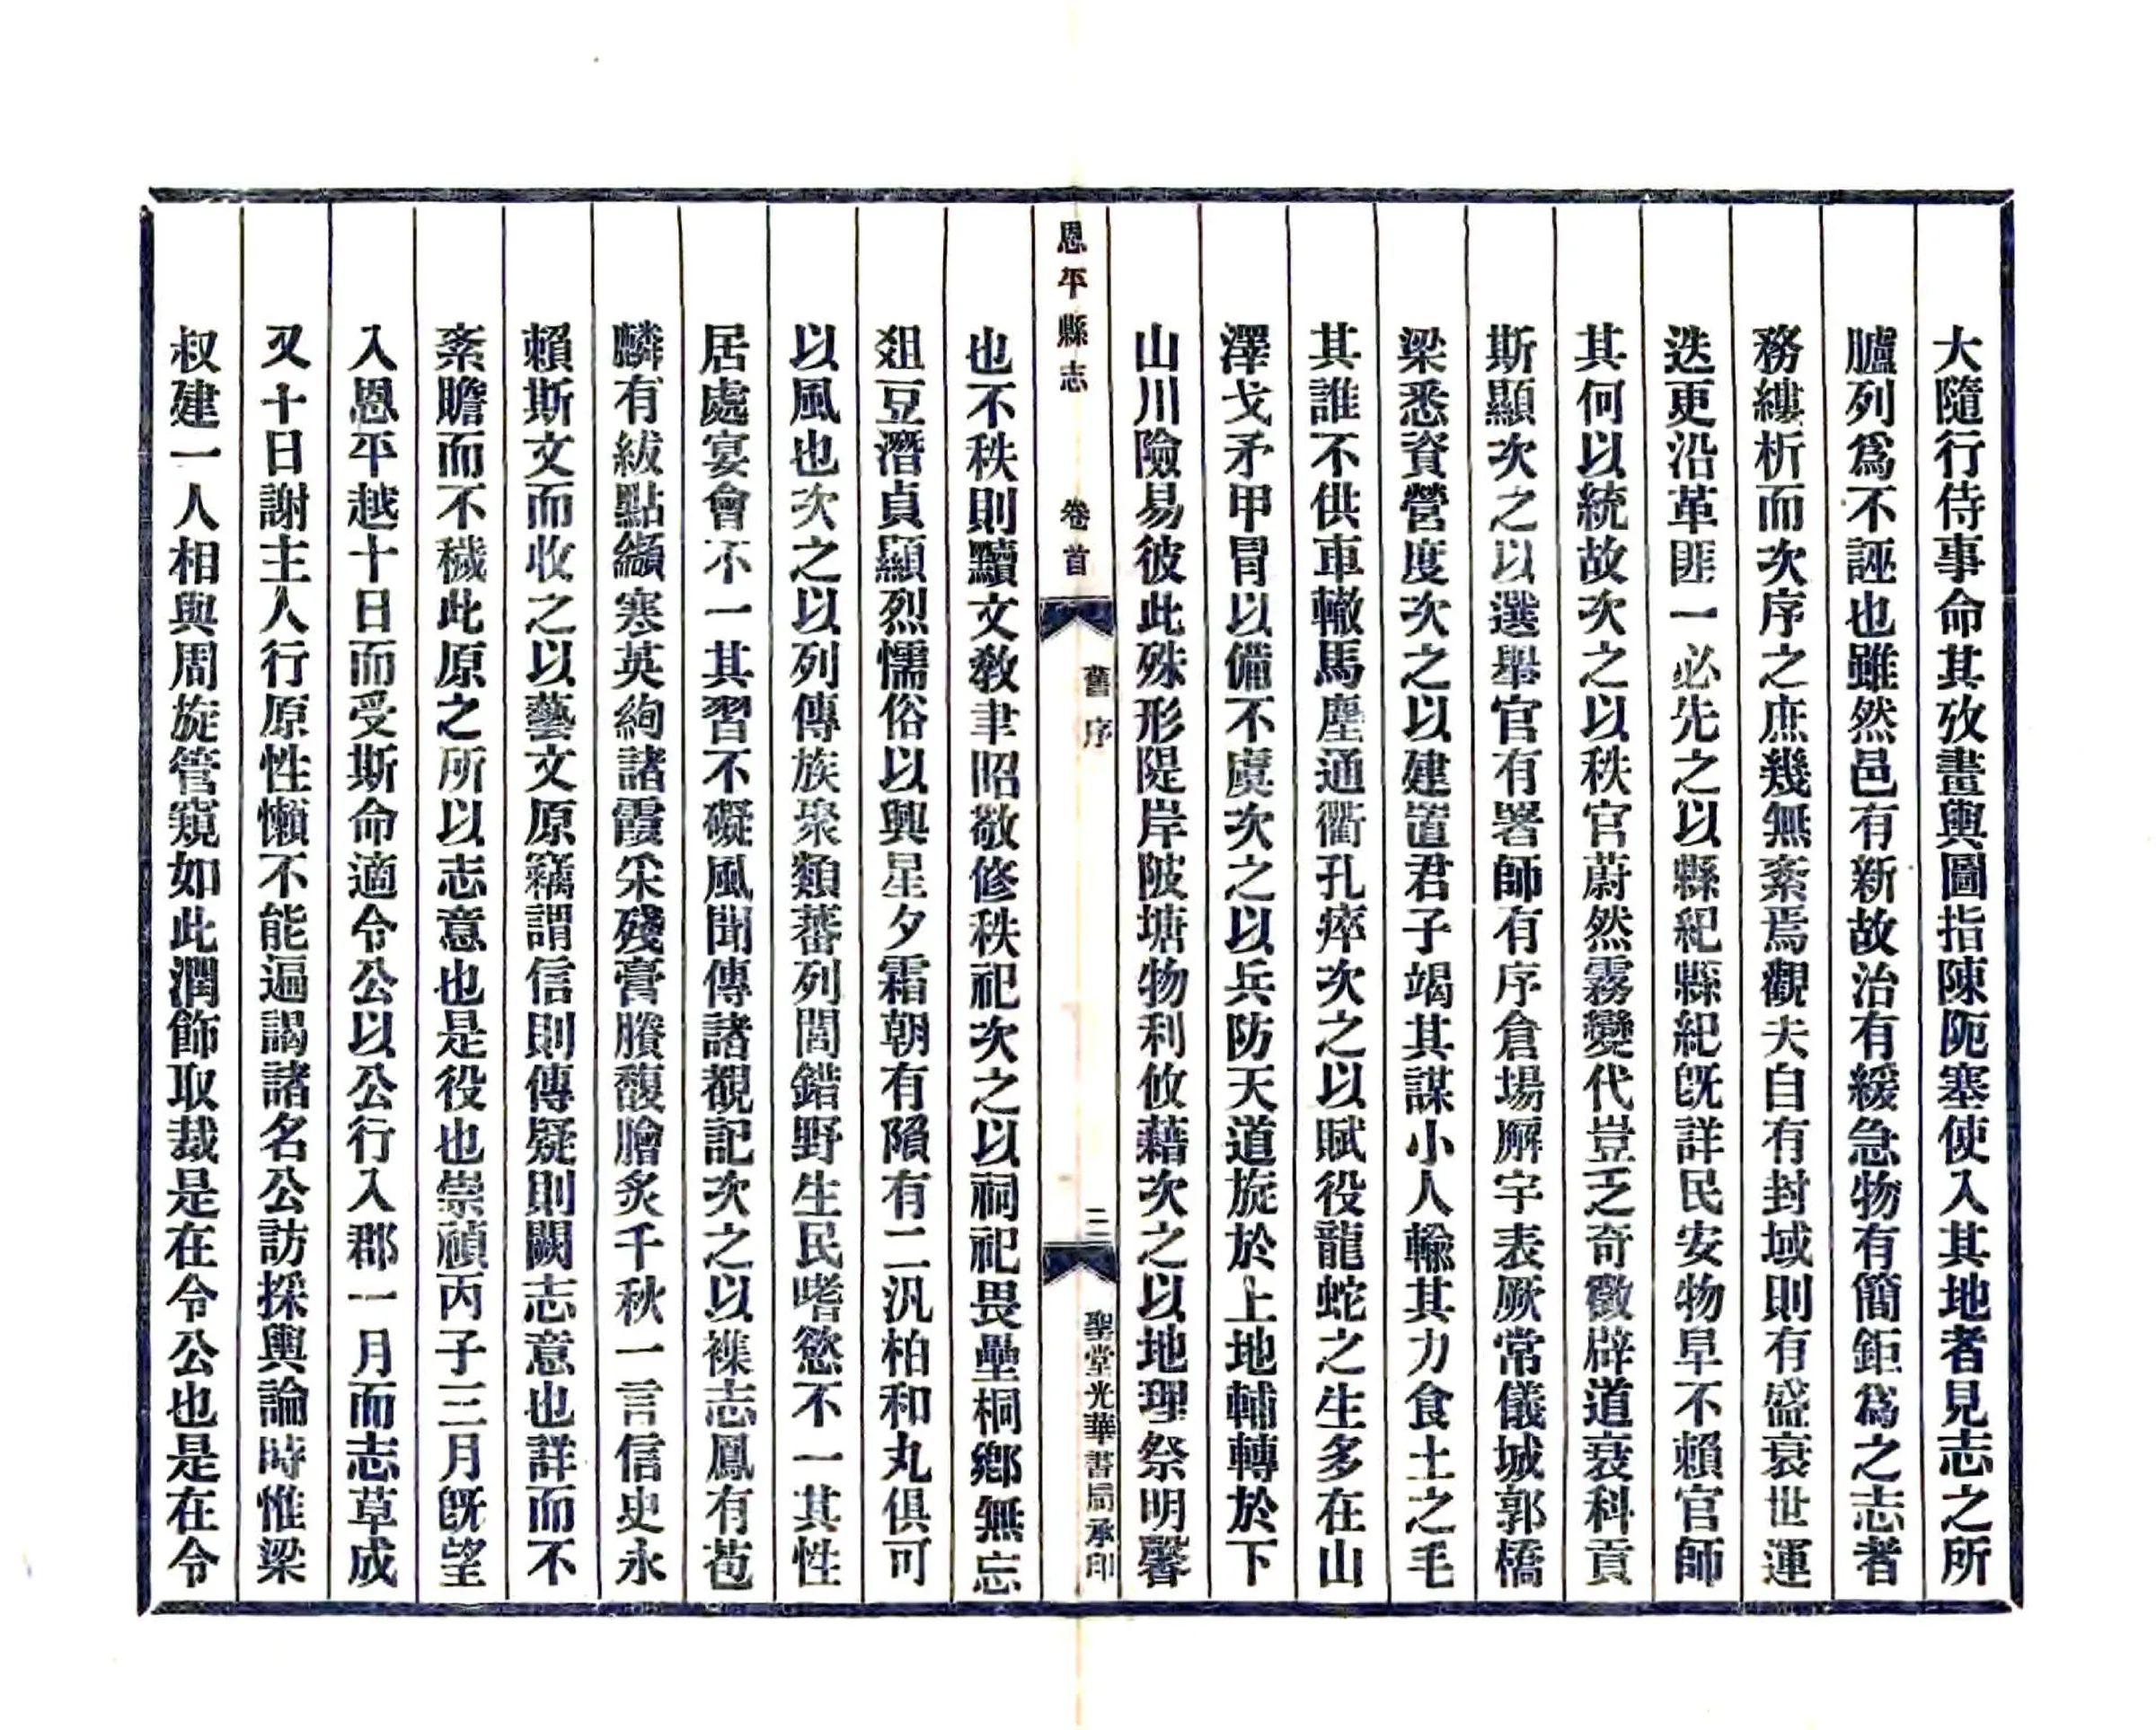 大隨行侍事命其攷畫輿圖指陳阨塞使入其地者見志之所
臚列爲不誣也雖然邑有新故治有緩急物有簡鉅爲之志者
務縷析而次序之庶幾無紊焉觀夫自有封域則有盛衰世運
迭更沿革匪一必先之以縣紀縣紀旣詳民安物阜不賴官師
其何以統故次之以秩官蔚然霧變代豈乏奇徵辟道衰科貢
斯顯次之以選舉官有署師有序倉場廨宇表厥常儀城郭橋
梁悉資營度次之以建置君子竭其謀小人輸其力食土之毛
其誰不供車轍馬塵通衢孔瘁次之以賦役龍蛇之生多在山
澤戈矛甲冑以備不虞次之以兵防天道旋於上地輔轉於下
山川險易彼此殊形隄岸陂塘物利攸藉次之以地理祭明馨
也不秩則黷文敎聿昭敬修秩祀次之以祠祀畏壘桐鄕無忘
俎豆潛貞顯烈懦俗以興星夕霜朝有隕有二汎柏和丸俱可
以風也次之以列傳族衆類蕃列閭錯野生民嗜慾不一其性
居處宴會不一其習不礙風聞傳諸覩記次之以襍志鳳有苞
麟有紱點纈寒英絢諸霞采殘膏賸馥膾炙千秋一言信史永
賴斯文而收之以藝文原竊謂信則傳疑則闕志意也詳而不
紊贍而不穢此原之所以志意也是役也崇禎丙子三月旣望
入恩平越十日而受斯命適令公以公行入郡一月而志草成
又十日謝主人行原性懶不能遍謁諸名公訪採輿論時惟梁
叔建一人相與周旋管窺如此潤飾取裁是在令公也是在令
恩平縣志 卷首 舊序 三 聖堂光華書局承印